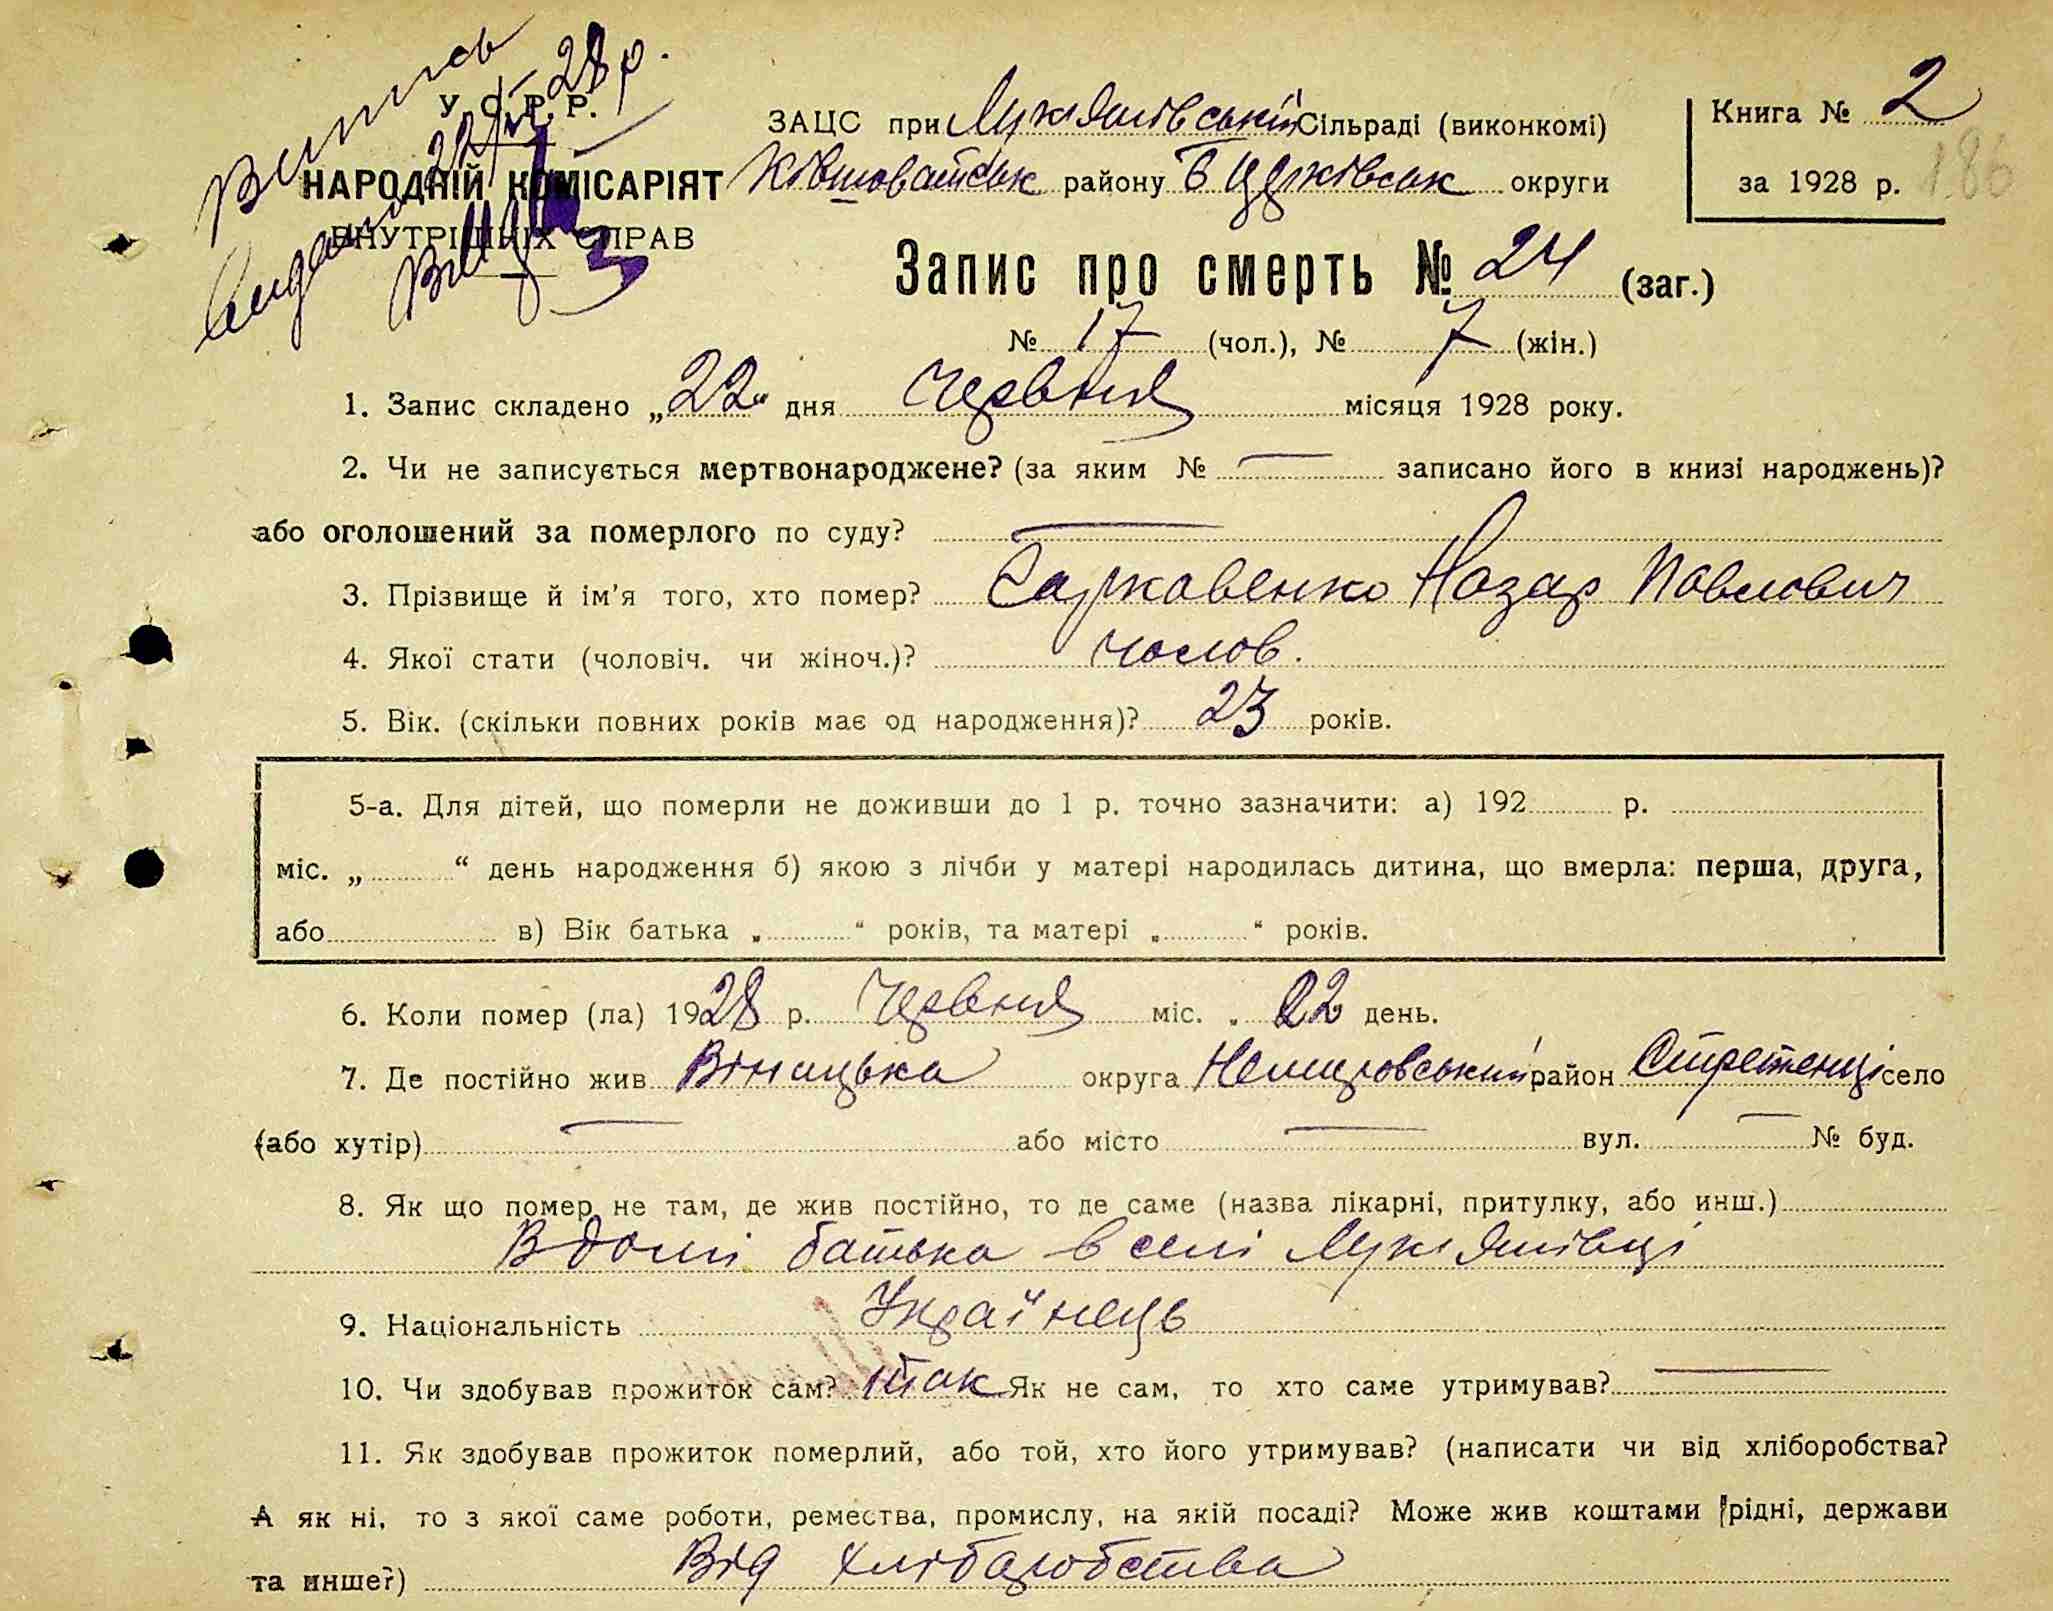 Випись
28 р.
У. С. Р. Р.
НАРОДНІЙ КОМІСАРІЯТ
ВНУТРІШНІХ СПРАВ
ЗАЦС при Лукянівській Сільраді (виконкомі)
Ківшоватськ району Б Церківськ округи
Книга № 2
за 1928 р.
186
Запис про смерть № 24 (заг.)
№ 17 (чол.), № 7 (жін.)
1. Запис складено „22“ дня Червня місяця 1928 року.
2. Чи не записується мертвонароджене? (за яким № — записано його в книзі народжень)?
або оголошений за померлого по суду? —
3. Прізвище й ім'я того, хто помер? Гаркавенко Назар Павлович
4. Якої стати (чоловіч. чи жіноч.)? чолов.
5. Вік. (скільки повних років має од народження)? 23 років.
5-а. Для дітей, що померли не доживши до 1 р. точно зазначити: а) 192 р.
міс. „ “ день народження б) якою з лічби у матері народилась дитина, що вмерла: перша, друга,
або в) Вік батька „ “ років, та матері „ “ років.
6. Коли помер (ла) 1928 р. Червня міс. „ 22 день.
7. Де постійно жив Віницька округа Немировський район Стретенці село
(або хутір) — або місто — вул. — № буд.
8. Як що помер не там, де жив постійно, то де саме (назва лікарні, притулку, або инш.)
В домі батька в селі Лукянівці
9. Національність Українець
10. Чи здобував прожиток сам? так Як не сам, то хто саме утримував? —
11. Як здобував прожиток померлий, або той, хто його утримував? (написати чи від хліборобства?
А як ні, то з якої саме роботи, ремества, промислу, на якій посаді? Може жив коштами рідні, держави
та инше?) Від хліборобства